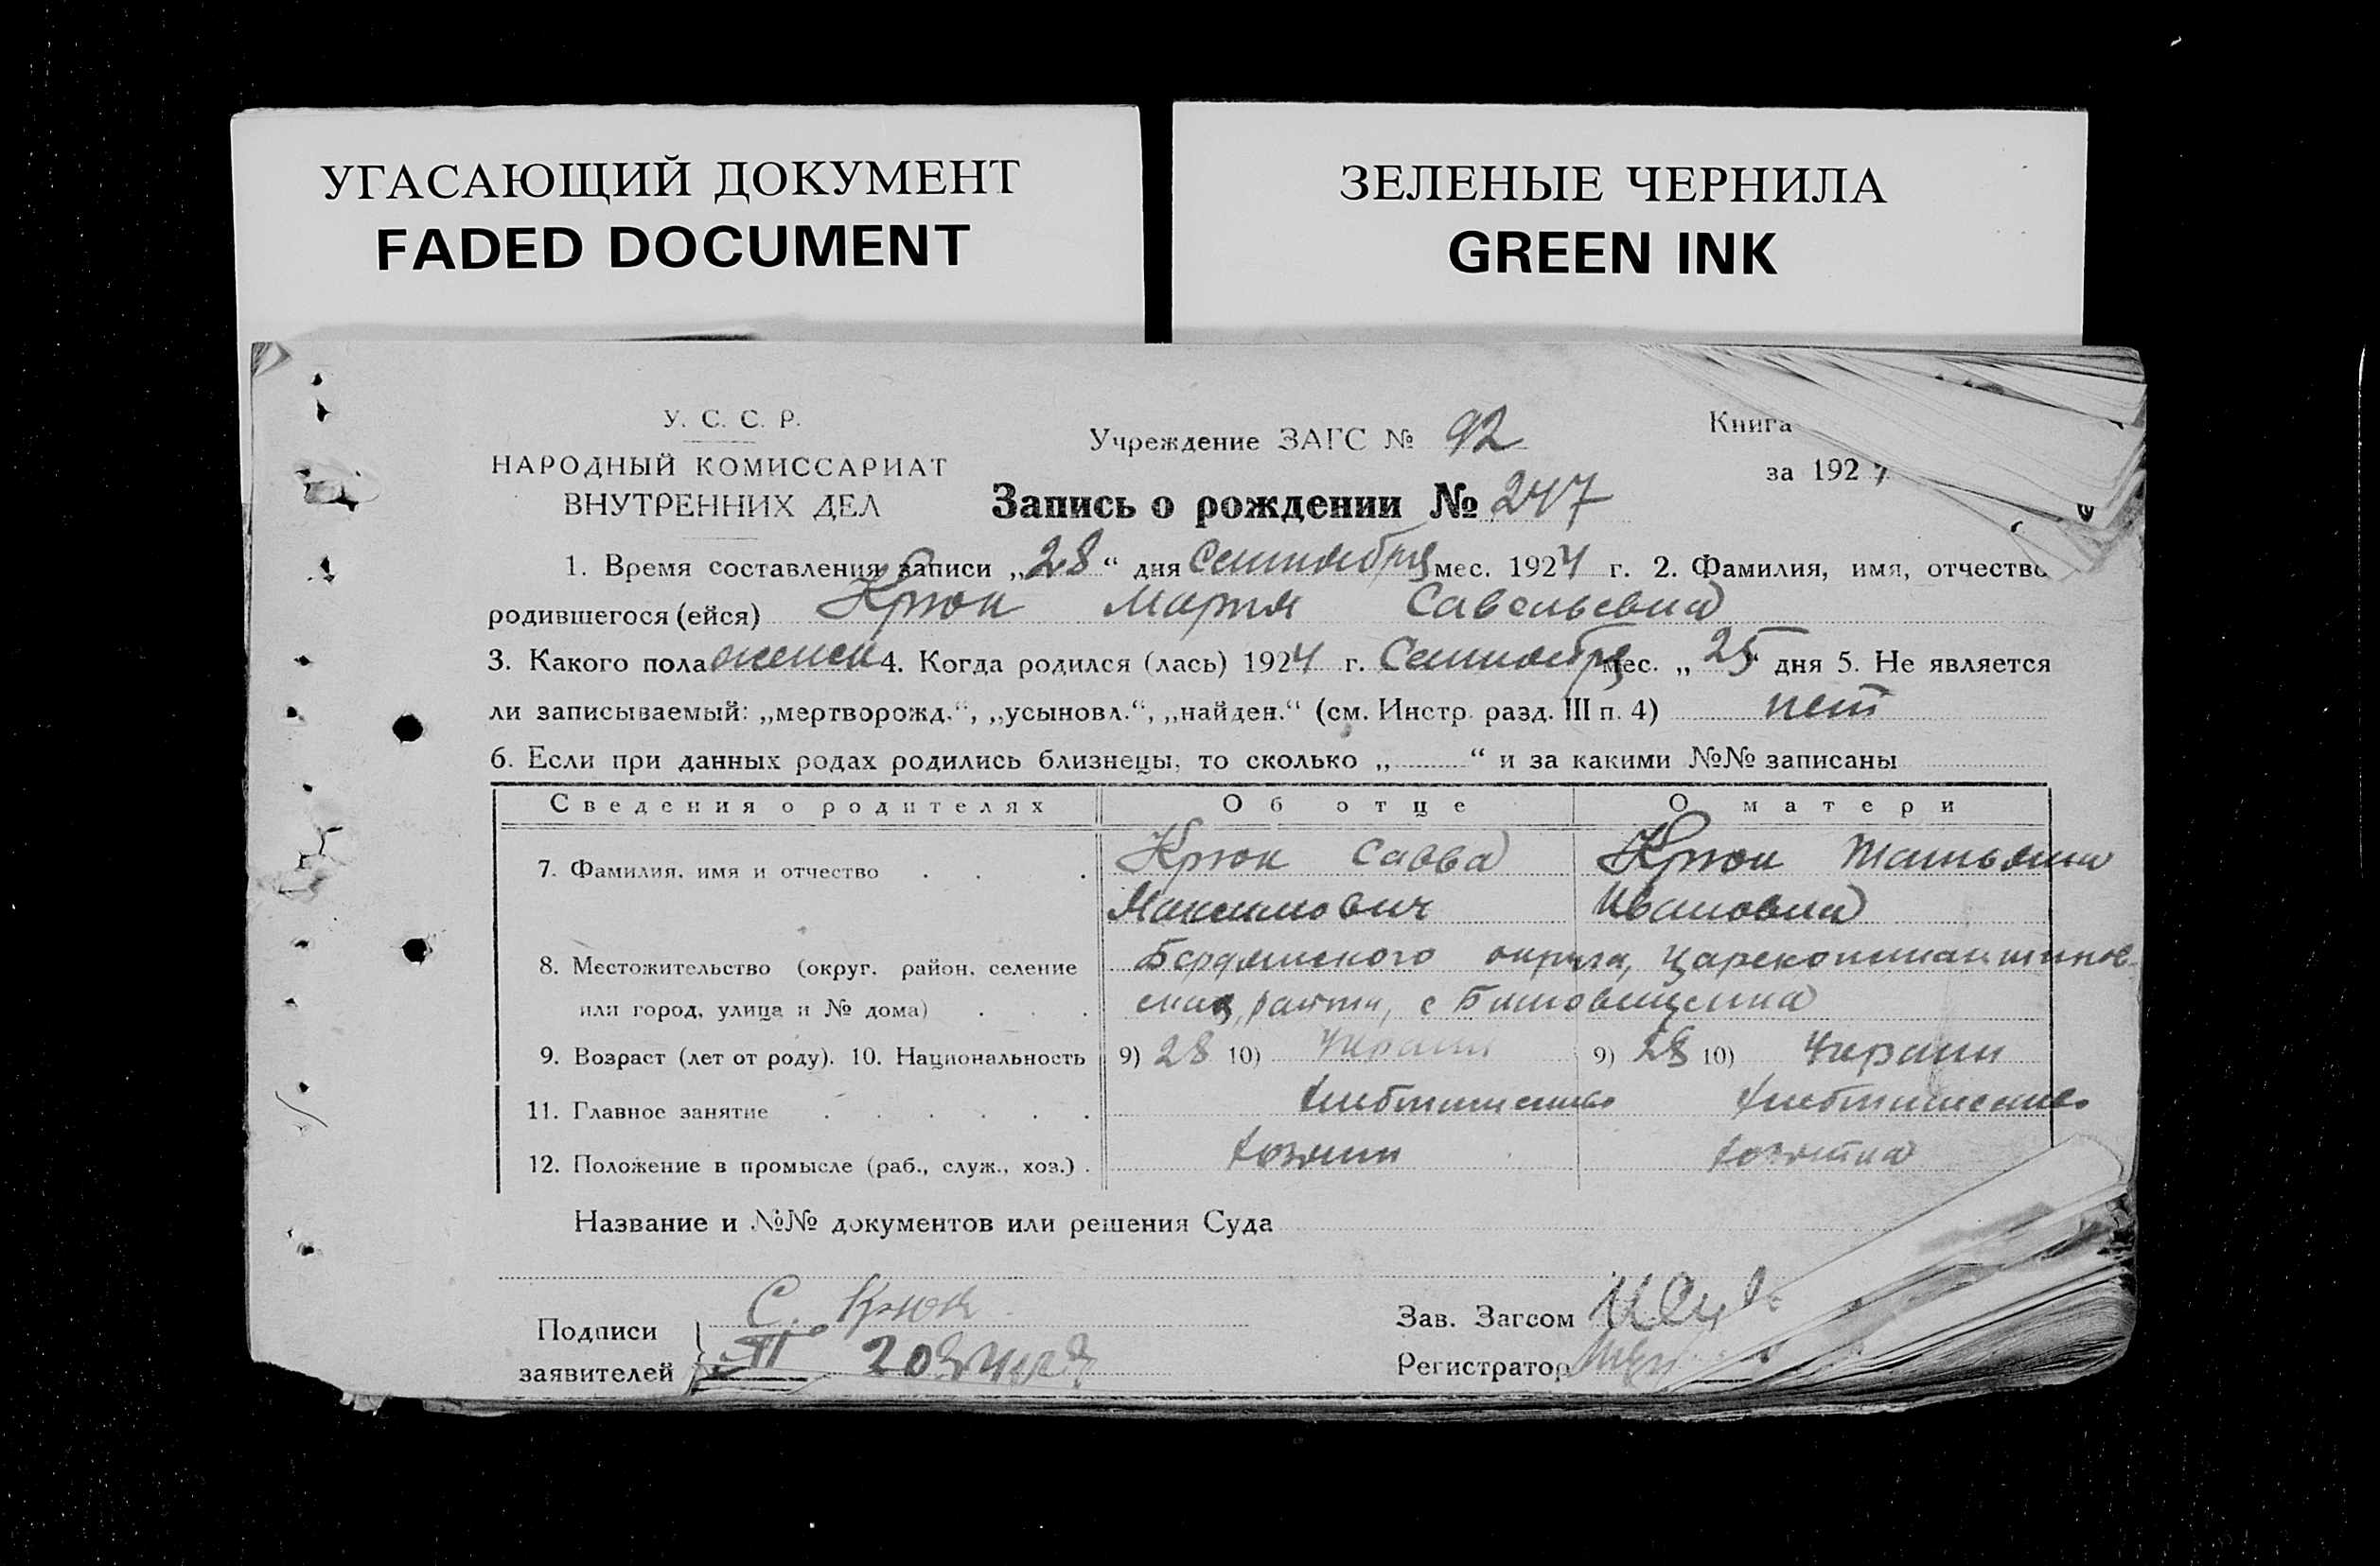 УГАСАЮЩИЙ ДОКУМЕНТ
FADED DOCUMENT
ЗЕЛЕНЫЕ ЧЕРНИЛА
GREEN INK
У. С. С. Р.
НАРОДНЫЙ КОМИССАРИАТ
ВНУТРЕННИХ ДЕЛ
Учреждение ЗАГС № 92
Книга
за 192
Запись о рождении № 247
1. Время составления записи „28“ дня Сентября мес. 1924 г. 2. Фамилия, имя, отчество
родившегося (ейся) Крюк Мария Савельевна
3. Какого пола женск 4. Когда родился (лась) 1924 г. Сентября мес. „25“ дня 5. Не является
ли записываемый: „мертворожд.“, „усыновл.“, „найден.“ (см. Инстр. разд. III п. 4) нет
6. Если при данных родах родились близнецы, то сколько „ “ и за какими №№ записаны
Сведения о родителях Об отце О матери
7. Фамилия, имя и отчество Крюк Савва Крюк Татьяна
Максимович Ивановна
8. Местожительство (округ, район, селение Бердянского округа, Цареконстантинов-
или город, улица и № дома) района, с
9. Возраст (лет от роду). 10. Национальность 9) 28 10) Украин 9) 28 10) Украин
11. Главное занятие хлебопашество хлебопашество
12. Положение в промысле (раб., служ., хоз.) хозяин хозяйка
Название и №№ документов или решения Суда
Подписи С. Крюк
заявителей
Зав. Загсом
Регистратор